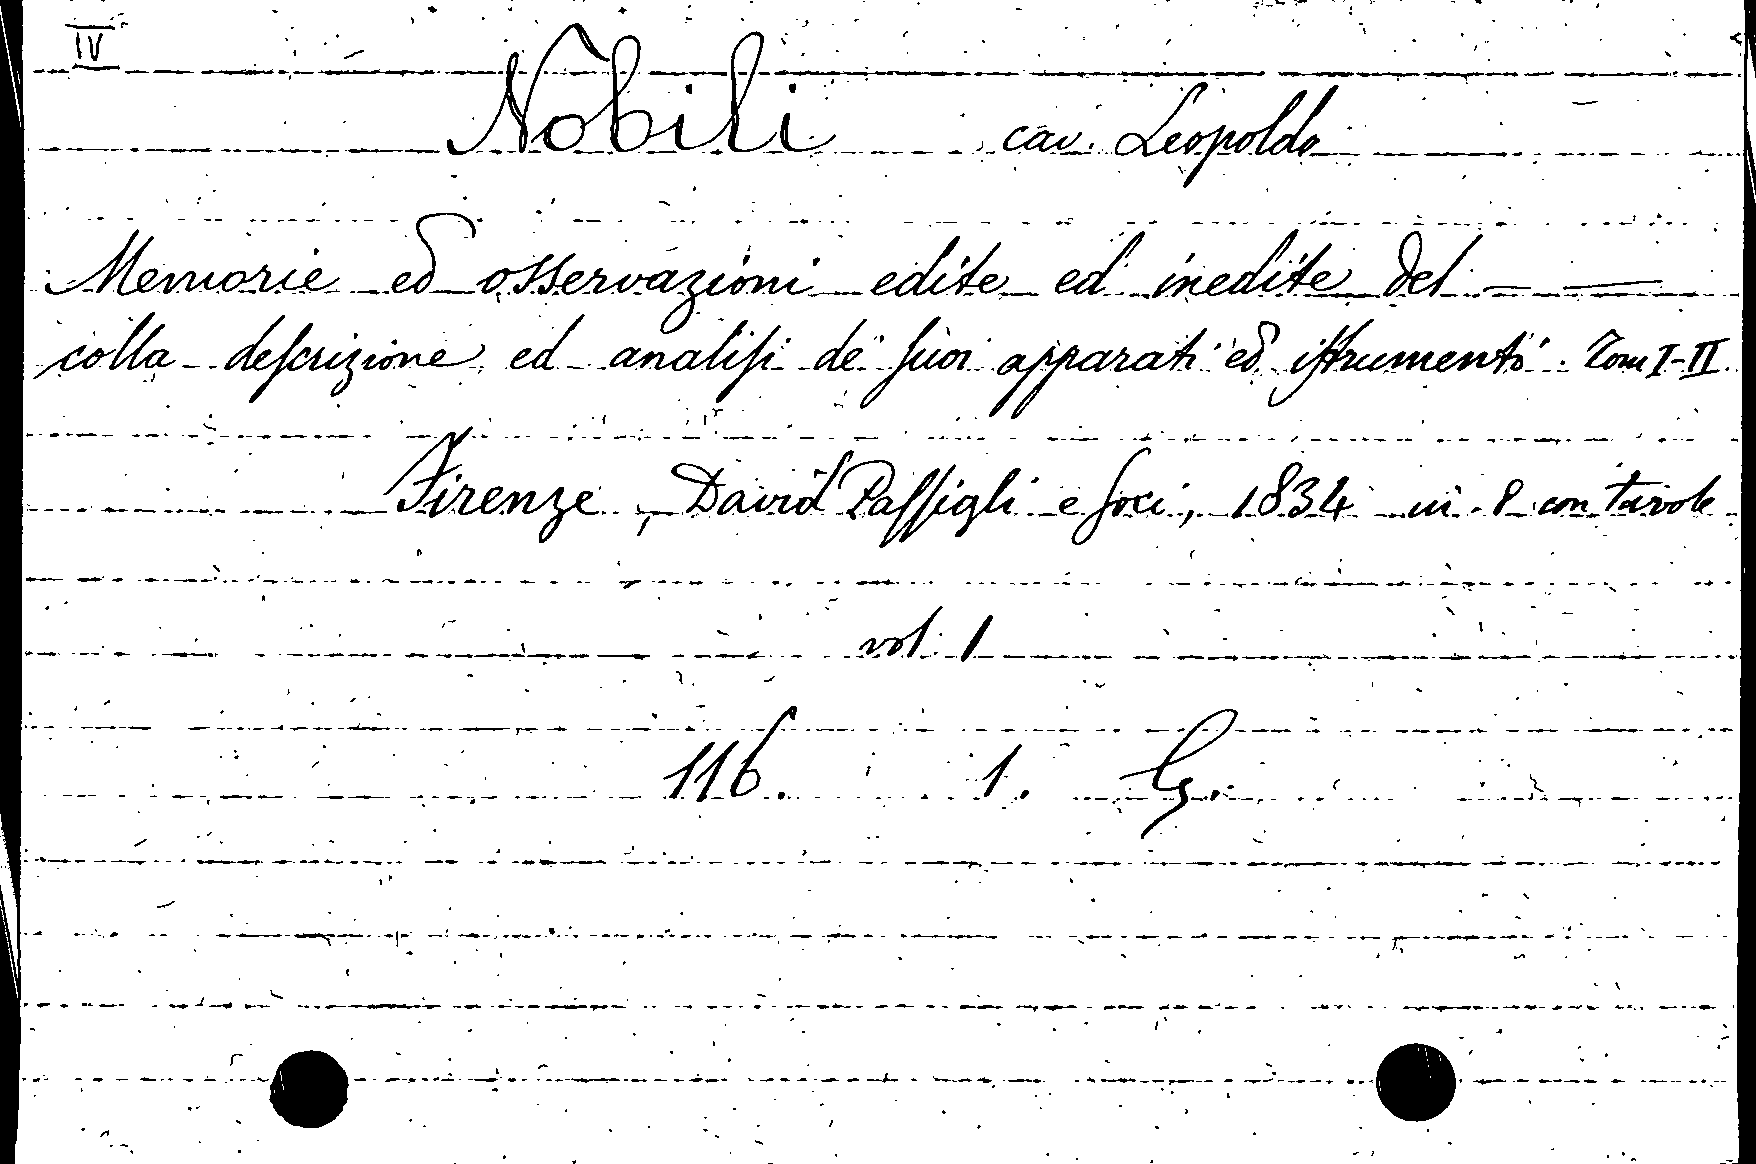 IV
Nobili cav. Leopoldo
Memorie ed osservazioni edite ed inedite del — —
colla deſcrizione ed analiſi de' ſuoi apparati ed iſtrumenti. Tom I-II
Firenze, David Paſſigli e ſoci, 1834 in 8 con tavole
vol. 1
116. 1. G.